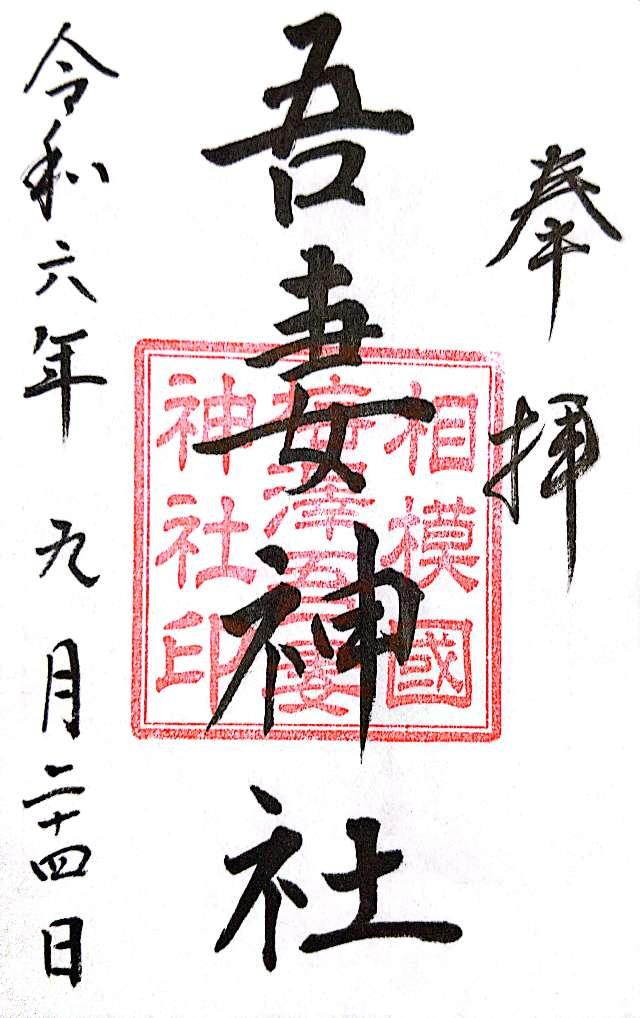 奉拝
吾妻神社
相模國
梅澤吾妻
神社印
令和六年九月二十四日